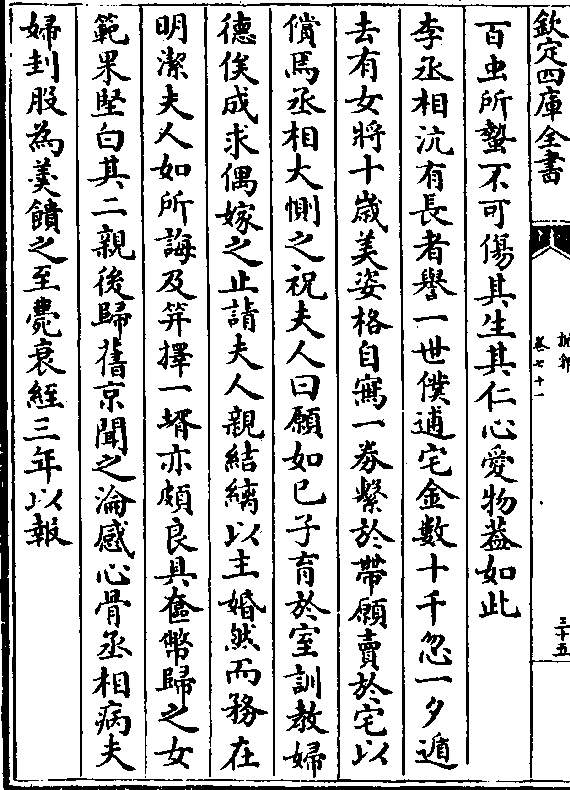 欽定四庫全書
說郛
卷七十一
三十五
百虫所蟄不可傷其生其仁心愛物葢如此
李丞相沆有長者譽一世僕逋宅金數十千忽一夕遁
去有女將十歲美姿格自寫一券繫於帶願賣於宅以
償焉丞相大惻之祝夫人曰願如已子育於室訓教婦
德俟成求偶嫁之止請夫人親結縭以主婚然而務在
明潔夫人如所誨及筓擇一壻亦頗良具奩幣歸之女
範果堅白其二親後歸舊京聞之淪感心骨丞相病夫
婦刲股為羮饋之至薨衰絰三年以報